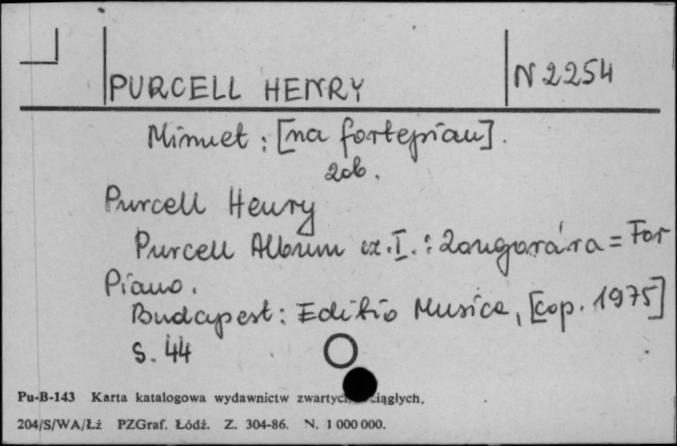 PURCELL HENRY N 2254
Minuet : [na fortepian].
zob.
Purcell Henry
Purcell Album cz. I. : Zongorára = For
Piano.
Budapest : Editio Musica, [cop. 1975]
S. 44
Pu-B-143 Karta katalogowa wydawnictw zwartych ciągłych.
204/S/WA/Łż PZGraf. Łódź. Z. 304-86. N. 1 000 000.